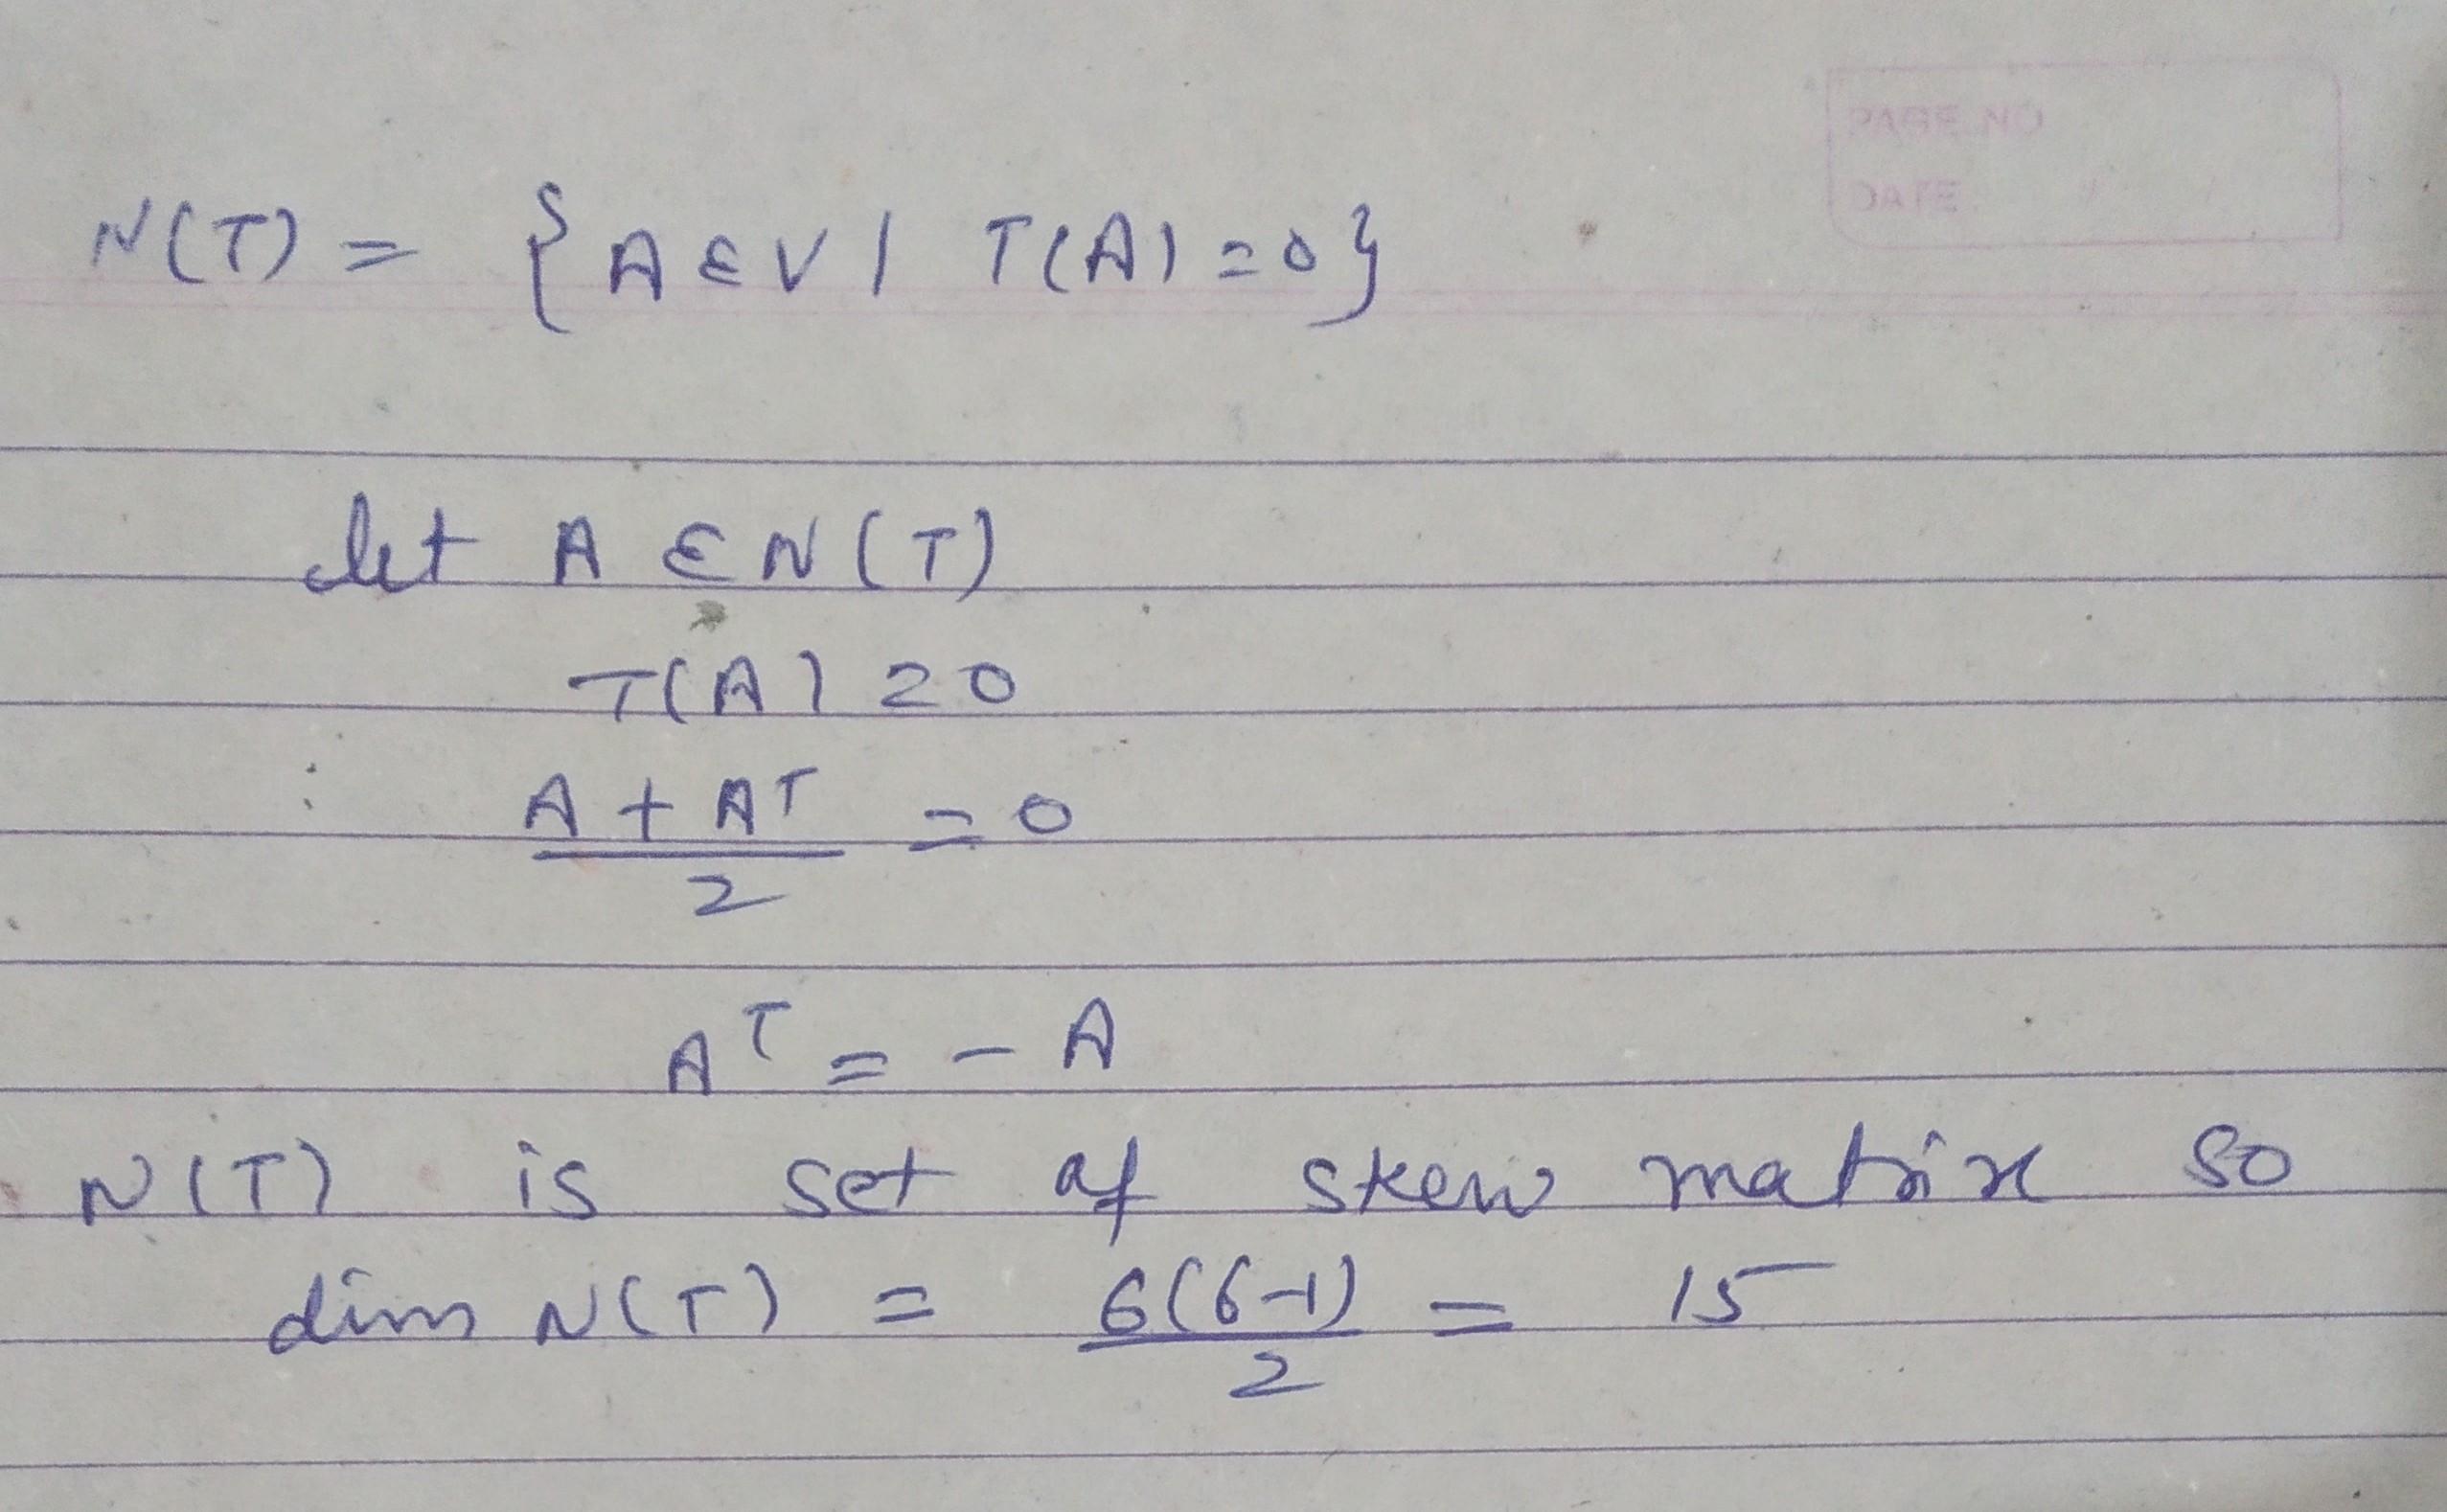 PAGE NO
DATE
N(T) = { A ∈ V | T(A) = 0 }
let A ∈ N(T)
T(A) = 0
A + Aᵀ = 0
2
Aᵀ = - A
N(T) is set of skew matrix so
dim N(T) = 6(6-1) = 15
2